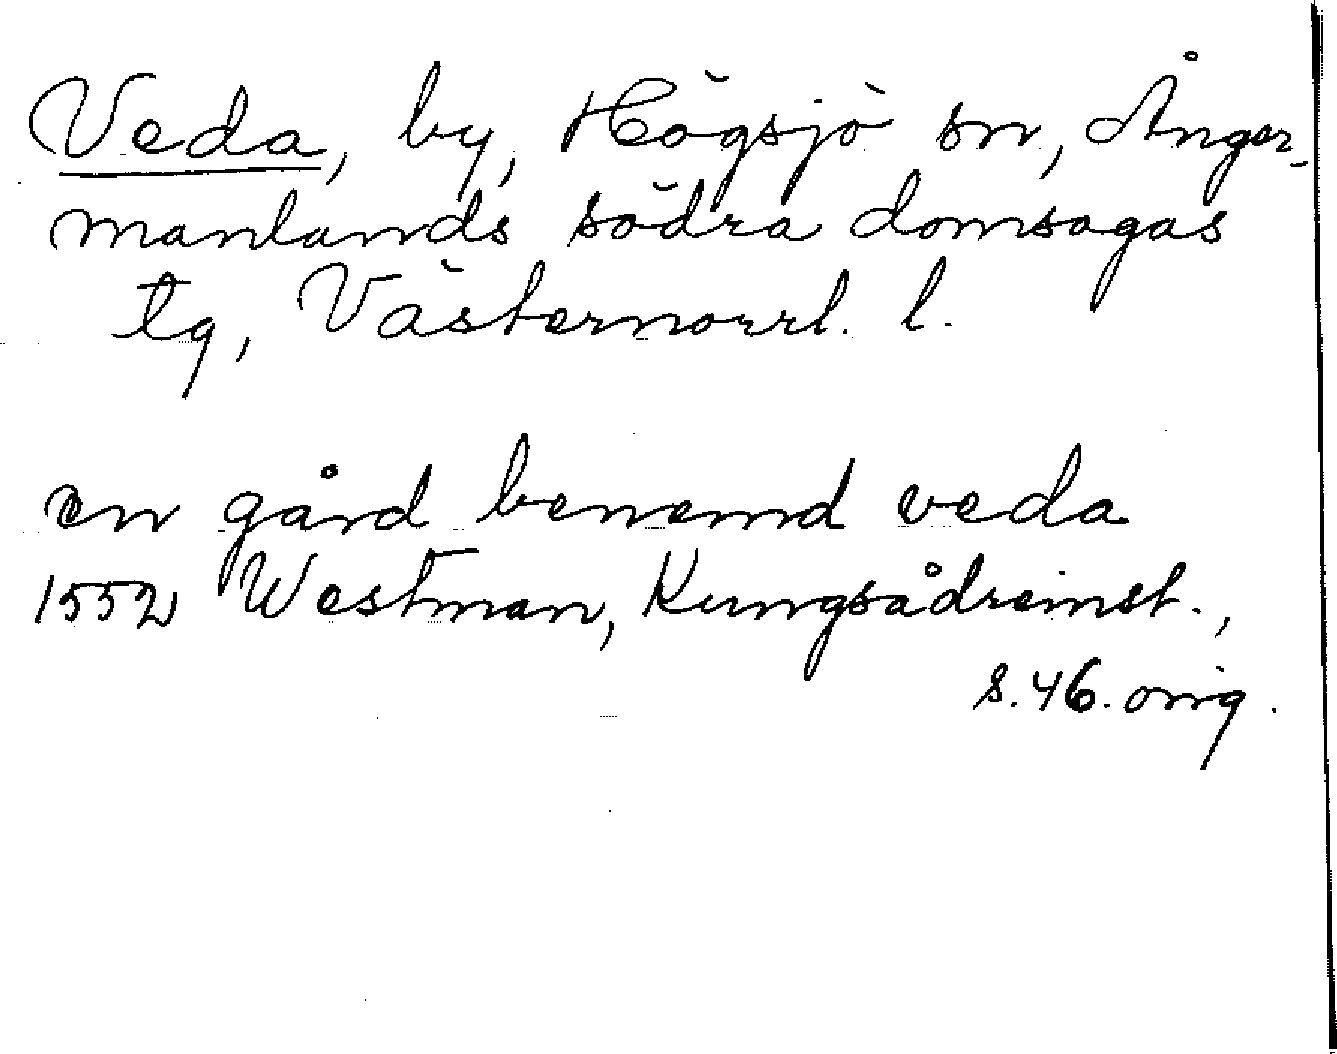 Veda, by, Högsjö sn, Ånger-
manlands södra domsagas
tg, Västernorrl. l.
en gård benemd veda
1552 Westman, Kungsådreinst.,
s. 46. orig.